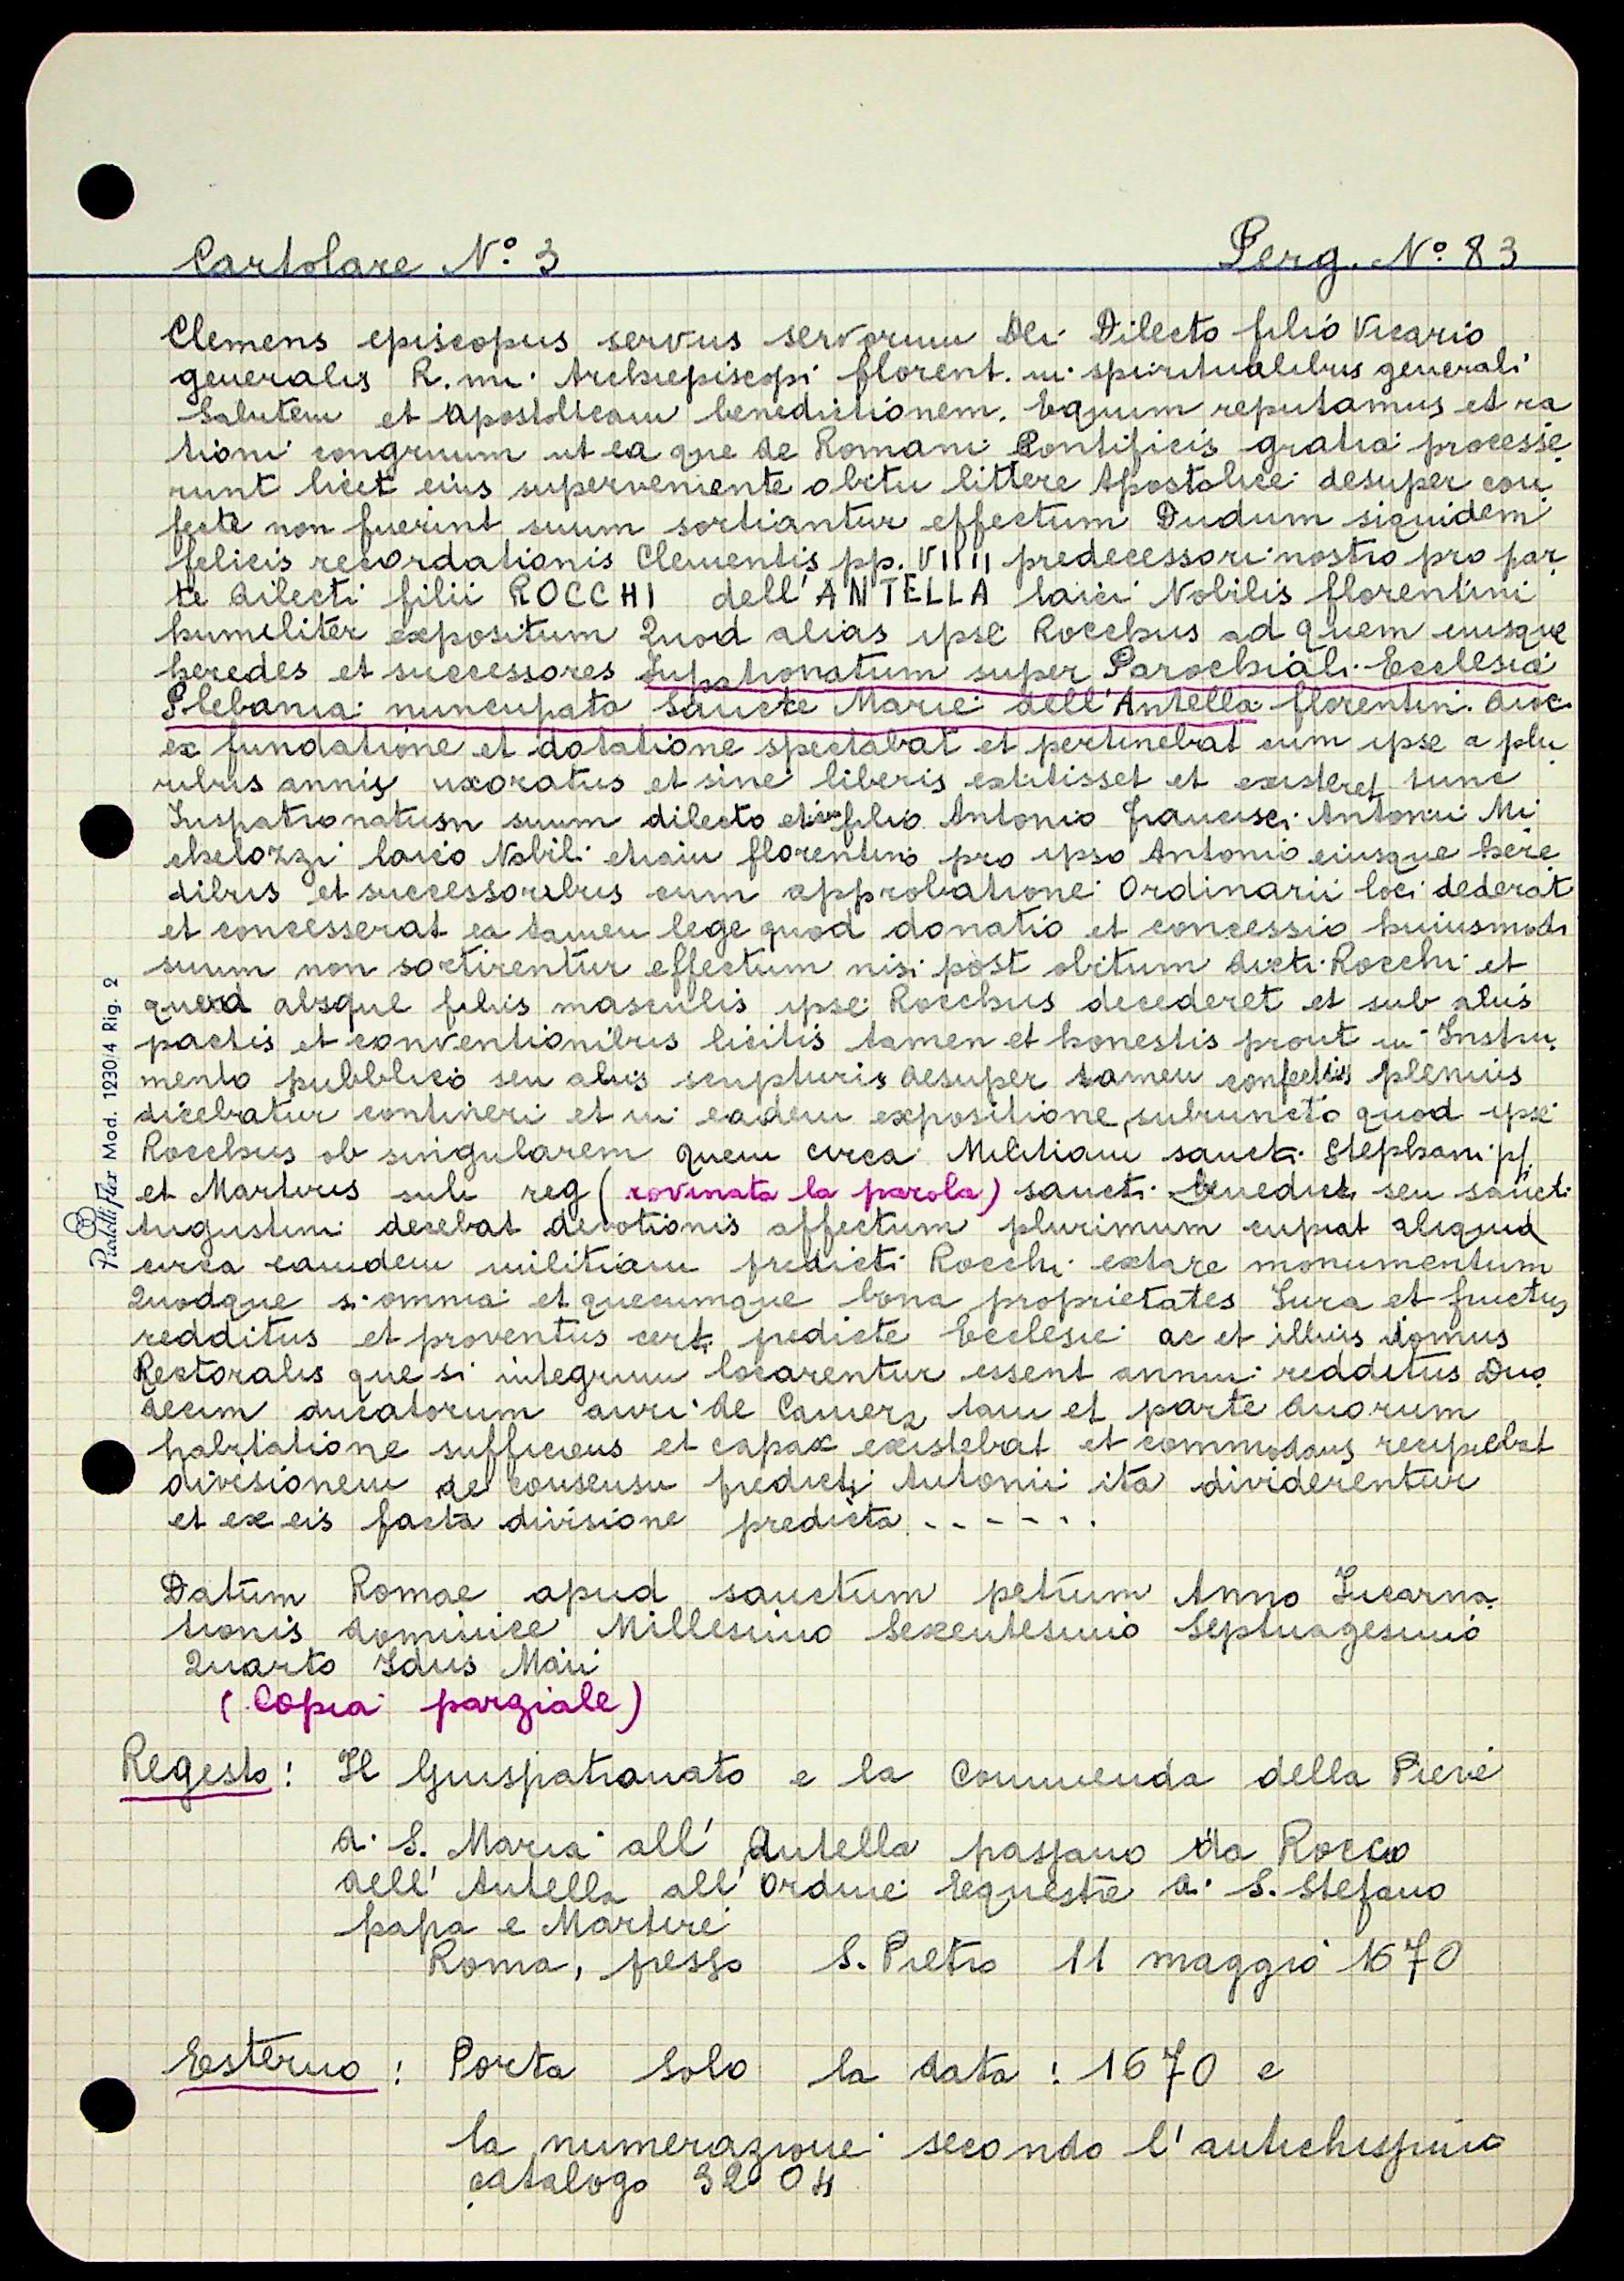 Cartolare N.° 3 Perg. N.° 83
Clemens episcopus servus servorum Dei Dilecto filio Vicario
generalis R.mi Archiepiscopi florent. in spiritualibus generali
Salutem et Apostolicam benedictionem. Equum reputamus et ra
tioni congruum ut ea que de Romani Pontificis gratia processe
runt licet eius superveniente obitu littere Apostolice desuper con
fecte non fuerint suum sortiantur effectum Dudum siquidem
felicis recordationis Clementis pp. VIIII predecessori nostro pro par
te dilecti filii ROCCHI dell'ANTELLA laici Nobilis florentini
humiliter expositum Quod alias ipse Rocchus ad quem eiusque
heredes et successores Iuspatronatum super Parochiali Ecclesia
Plebania nuncupata Sancte Marie dell'Antella florentin. dioc.
ex fundatione et dotatione spectabat et pertinebat cum ipse a plu
ribus annis uxoratus et sine liberis extitisset et existeret tunc
Iuspatronatusn suum dilecto etiam filio Antonio Francisci Antonii Mi
chelozzi laico Nobili etiam florentino pro ipso Antonio eiusque here
dibus et successoribus cum approbatione Ordinarii loci dederat
et concesserat ea tamen lege quod donatio et concessio huiusmodi
suum non sortirentur effectum nisi post obitum dicti Rocchi et
quod absque filiis masculis ipse Rocchus decederet et sub aliis
pactis et conventionibus licitis tamen et honestis prout in Instru
mento pubblico seu aliis scripturis desuper tamen confectis plenius
dicebatur contineri et in eadem expositione subiuncto quod ipse
Rocchus ob singularem quem circa Militiam sancti Stephani pp.
et Martiris sub reg (rovinata la parola) sancti Benedicti seu sancti
Augustini decebat devotionis affectum plurimum cupiat aliquid
circa eamdem militiam predicti Rocchi extare monumentum
Quodque si omnia et quecumque bona proprietates Iura et fructus
redditus et proventus cert. predicte Ecclesie ac et illius domus
Rectoralis que si integrum locarentur essent annui redditus Duo
decim ducatorum auri de Camera tam et parte duorum
habitatione sufficiens et capax existebat et commodans recipiebat
divisionem de consensu predicti Antonii ita dividerentur
et ex eis facta divisione predicta . - - - - . .
Datum Romae apud sanctum petrum Anno Incarna
tionis dominice Millesimo Sexentesimo Septuagesimo
Quarto Idus Maii
(Copia parziale)
Regesto: Il Giuspatronato e la Commenda della Pieve
di S. Maria all'Antella passano da Rocco
dell'Antella all'Ordine Equestre di S. Stefano
papa e Martire
Roma, presso S. Pietro 11 maggio 1670
Esterno: Porta solo la data: 1670 e
la numerazione secondo l'antichissimo
catalogo 3204
Pratelli Flex Mod. 1230/4 Rig. 2